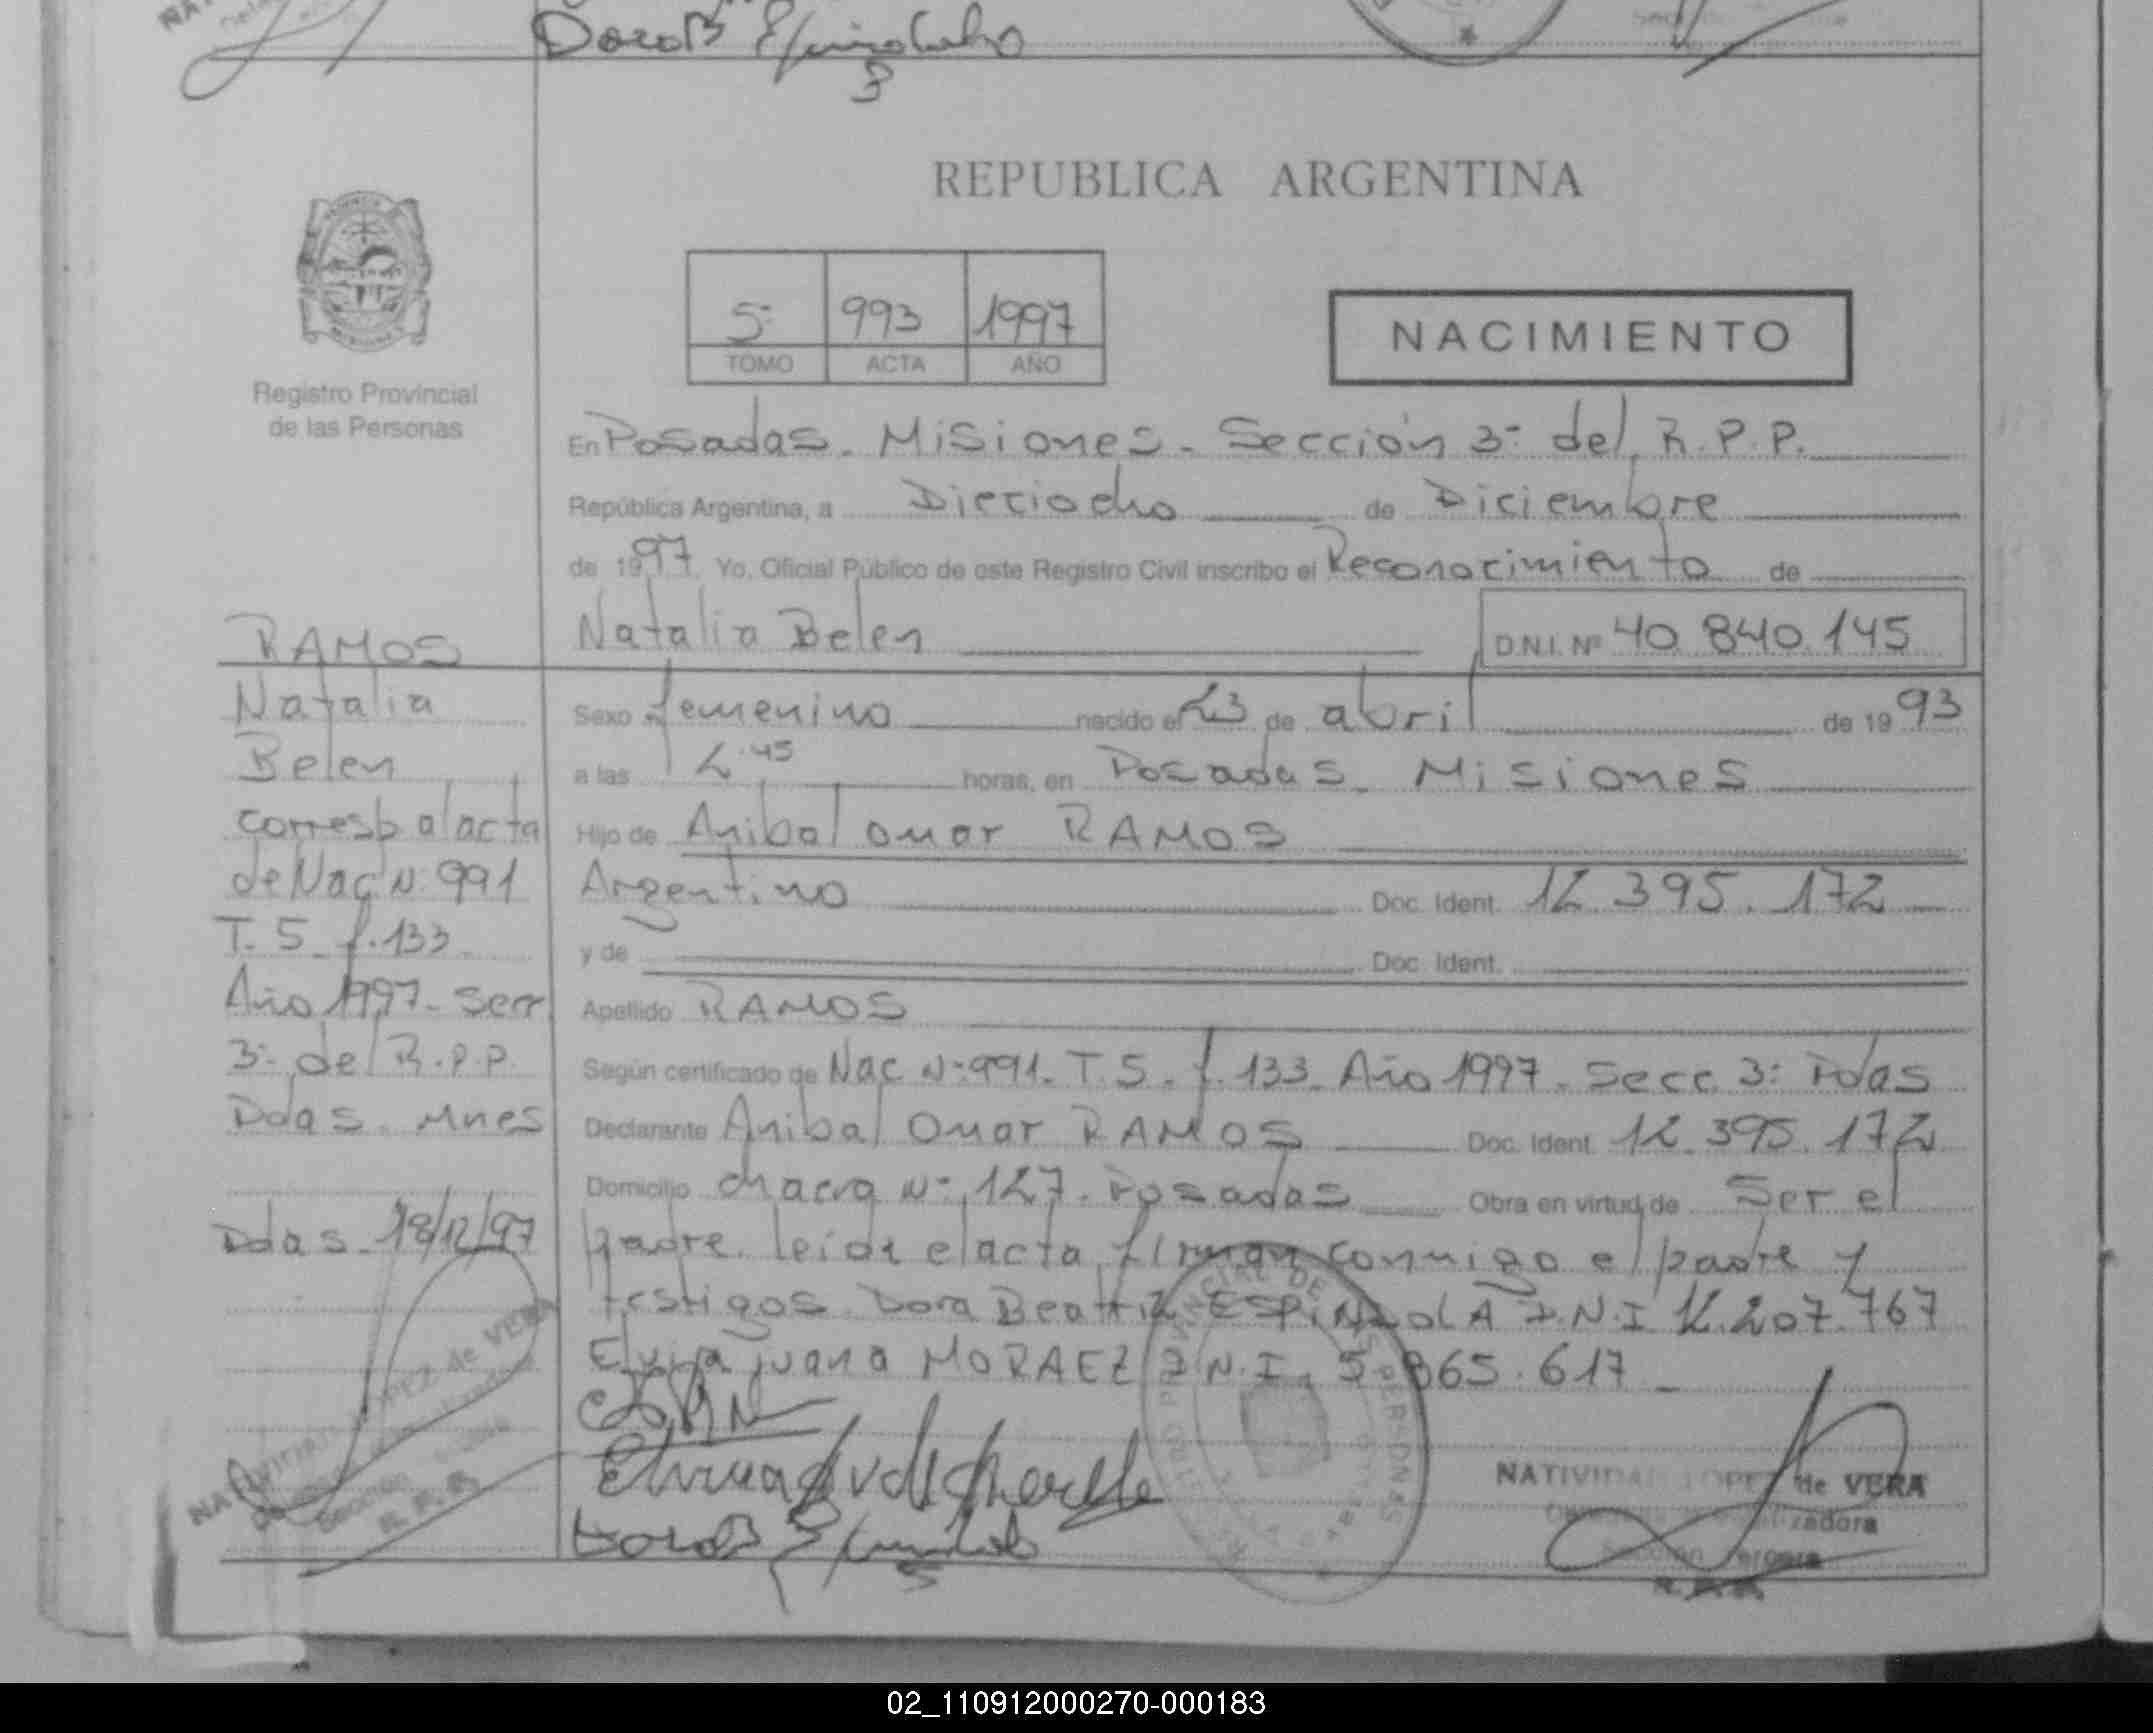 REPUBLICA ARGENTINA
5º 993 1997
TOMO ACTA AÑO
NACIMIENTO
Registro Provincial
de las Personas
En Posadas. Misiones. Sección 3º del R.P.P.
República Argentina, a Dieciocho de Diciembre
de 1997. Yo, Oficial Público de este Registro Civil inscribo el Reconocimiento de
Natalia Belen D.N.I. Nº 40.840.145
Sexo femenino nacido el 23 de abril de 1993
a las 12.45 horas, en Posadas. Misiones
Hijo de Anibal Omar RAMOS
Argentino Doc. Ident. 12.395.172
y de Doc. Ident.
Apellido RAMOS
Según certificado de Nac Nº 991. T. 5. f. 133. Año 1997. Secc. 3º Pdas
Declarante Anibal Omar RAMOS Doc. Ident. 12.395.172
Domicilio chacra Nº 127. Posadas Obra en virtud de Ser el
padre. leida el acta firman conmigo el padre y
testigos. Dora Beatriz ESPINDOLA D.N.I 12.207.767
Elvira juana MORAEZ D.N.I. 5.865.617
RAMOS
Natalia
Belen
corresp al acta
de Nac N. 991
T. 5 f. 133
Año 1997. Secc
3º del R.P.P.
Pdas. Mnes
Pdas. 18/12/97
NATIVIDAD LOPEZ de VERA
Sección Tercera
R.P.P.
NATIVIDAD LOPEZ de VERA
Sección
R.P.P.
02_110912000270-000183